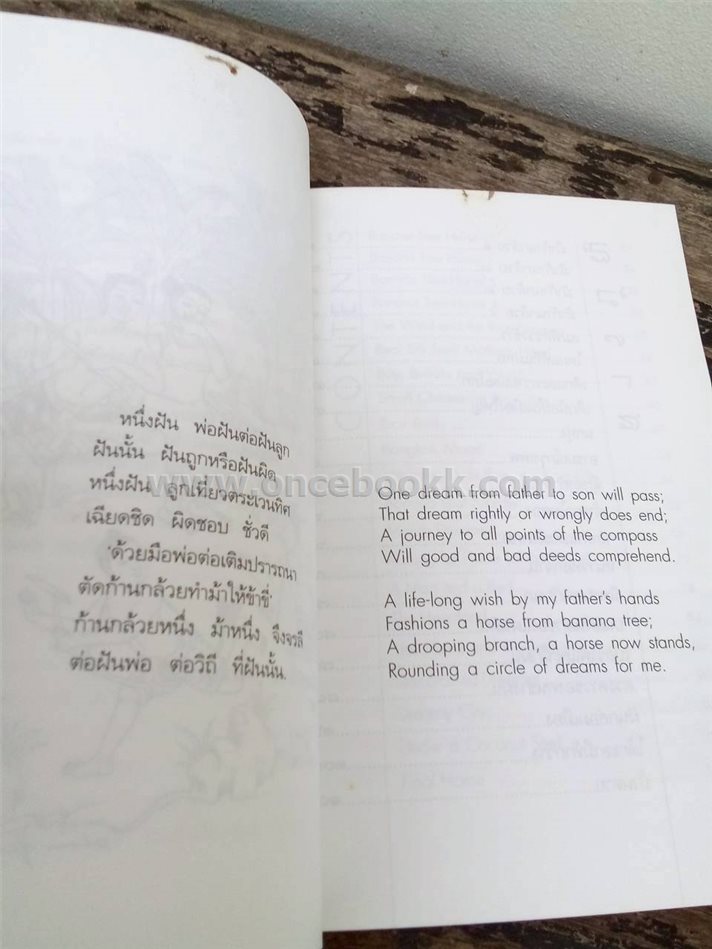 หนึ่งฝัน พ่อฝันต่อฝันลูก
ฝันนั้น ฝันถูกหรือฝันผิด
หนึ่งฝัน ลูกเที่ยวตระเวนทิศ
เฉียดชิด ผิดชอบ ชั่วดี
'ด้วยมือพ่อต่อเติมปรารถนา
ตัดก้านกล้วยทำม้าให้ข้าขี่'
ก้านกล้วยหนึ่ง ม้าหนึ่ง จึงจรลี
ต่อฝันพ่อ ต่อวิถี ที่ฝันนั้น.
www.oncebookk.com
One dream from father to son will pass;
That dream rightly or wrongly does end;
A journey to all points of the compass
Will good and bad deeds comprehend.
A life-long wish by my father's hands
Fashions a horse from banana tree;
A drooping branch, a horse now stands,
Rounding a circle of dreams for me.